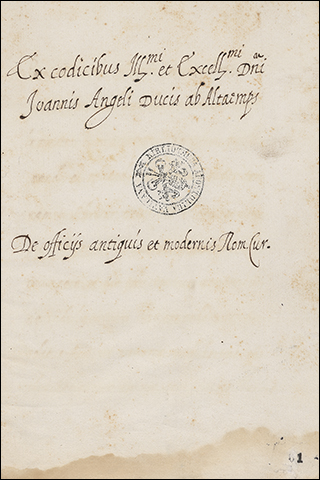 Ex codicibus Ill.mi et Excell.mi Dñi
Joannis Angeli Ducis ab Altaemps
De officijs antiquis et modernis Rom Cur.
1